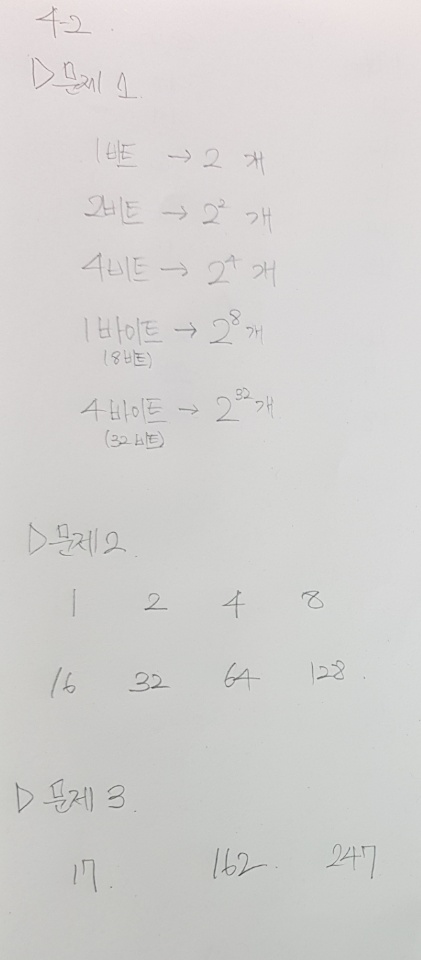 4-2.
▷문제 1
1비트 → 2 개
2비트 → 2² 개
4비트 → 2⁴ 개
1바이트 → 2⁸개
(8비트)
4바이트 → 2³²개
(32비트)
▷문제2
1 2 4 8
16 32 64 128.
▷문제 3.
17. 162. 247